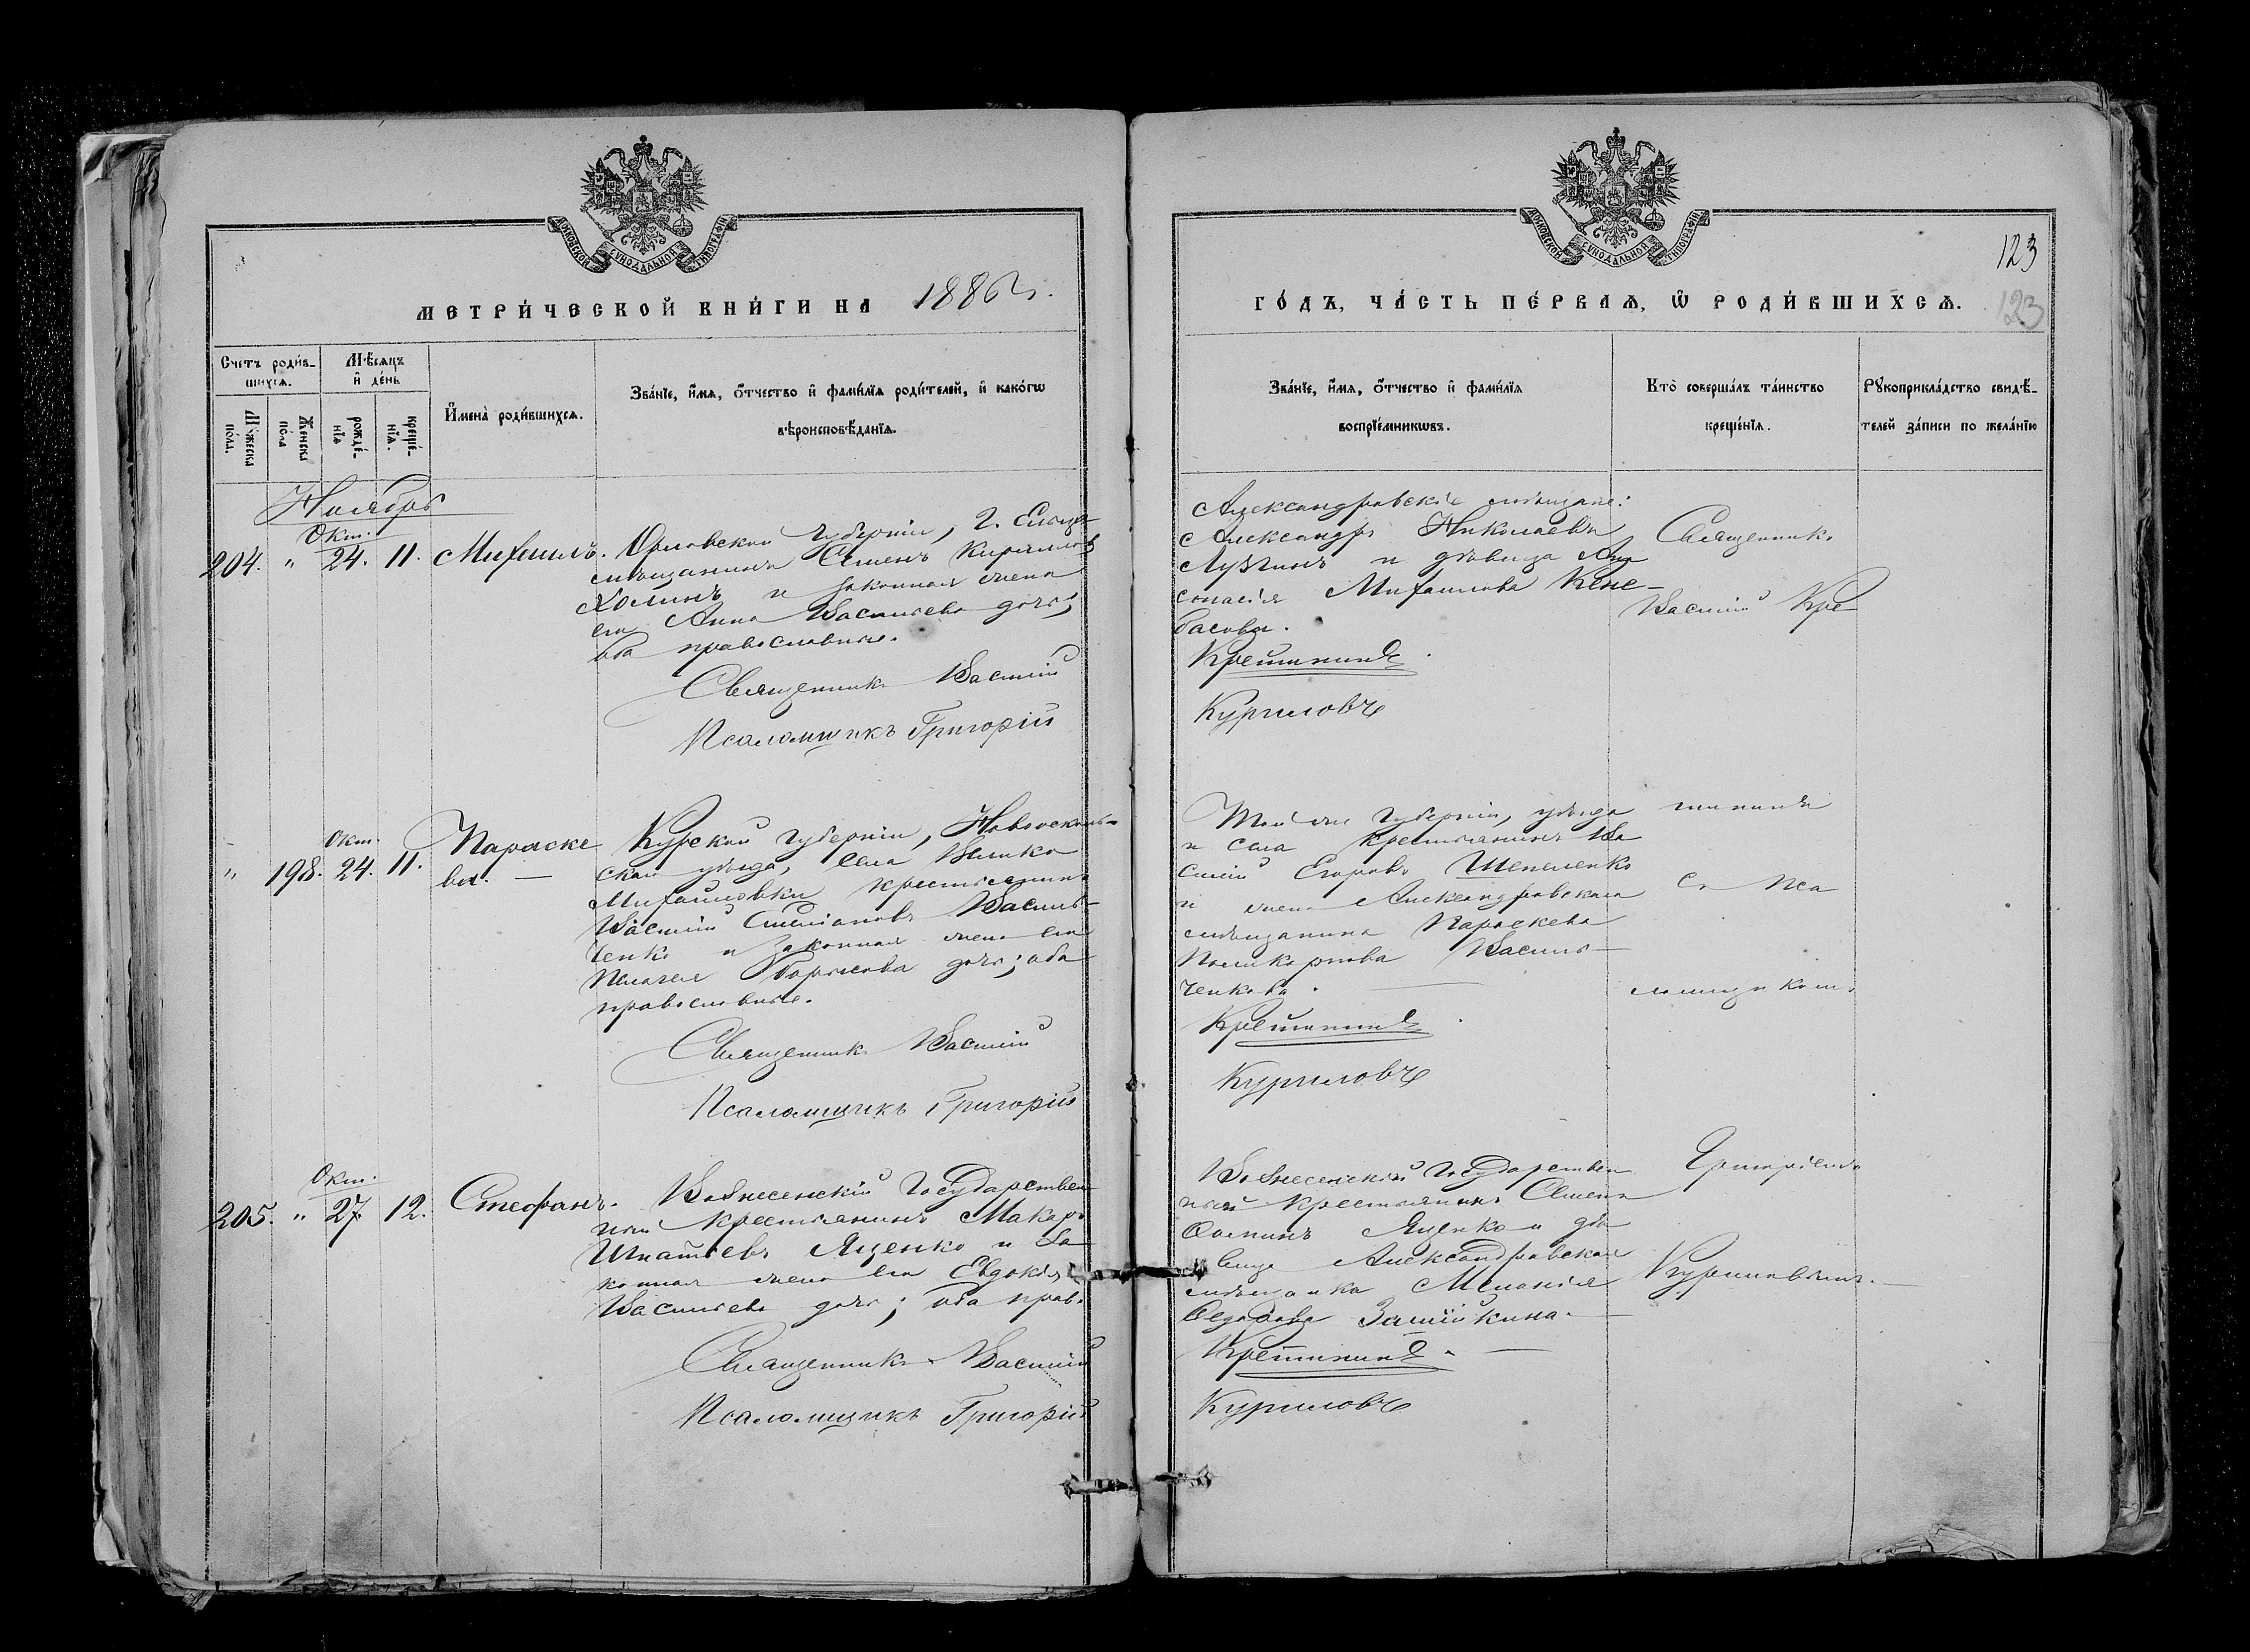 МОСКОВСКОЙ СУНОДАЛЬНОЙ ТИПОГРАФІИ
МЕТРИ́ЧЕСКОЙ КНИ́ГИ НА 1886 г.
Счетъ роди́в-
шихсѧ.
Мꙋ́жеска по́ла.
Же́нска по́ла
Мѣ́сѧцъ
и҆ де́нь
рожде́-
нїѧ
креще́-
нїѧ.
И҆мена̀ роди́вшихсѧ.
Зва́нїе, и҆́мѧ, ѻ҆́тчество и҆ фами́лїѧ роди́телей, и҆ како́гѡ
вѣроисповѣ́данїѧ.
Ноябрь
204. " Окт. 24. 11. Михаилъ.
Орловской губерніи, г. Ельца
мѣщанинъ Семенъ Кириловъ
Холинъ и законная жена
его Анна Васильева дочь;
оба православные.
Священникъ Василій
Псаломщикъ Григорій
" 198. Окт. 24. 11. Параске
ва. —
Курской губерніи, Новооскол-
скаго уѣзда, села Велико
Михайловки крестьянинъ
Василій Степановъ Василь-
ченко и законная жена его
Пелагея Борисова дочь; оба
православные.
Священникъ Василій
Псаломщикъ Григорій
205. " Окт. 27. 12. Стефанъ.
Вознесенскій государствен
ный крестьянинъ Макаръ
Игнатьевъ Яценко и за
конная жена его Евдокія
Васильева дочь; оба прав.
Священникъ Василій
Псаломщикъ Григорій
МОСКОВСКОЙ СУНОДАЛЬНОЙ ТИПОГРАФІИ
123
ГО́ДЪ, ЧА́СТЬ ПЕ́РВАѦ, Ѡ҆ РОДИ́ВШИХСѦ.
123
Зва́нїе, и҆́мѧ, ѻ҆́тчество и҆ фами́лїѧ
воспрїе́мникѡвъ.
Кто̀ соверша́лъ та́инство
креще́нїѧ.
Рꙋкоприкла́дство свидѣ́-
телей за́писи по жела́нїю
Александровскіе мѣщане:
Александръ Николаевъ
и дѣвица
Михаилова
Крейтнинъ.
Куриловъ
Той же губерніи, уѣзда
и села крестьянинъ Ва
силій Егоровъ Шепеленко
и жена Александровскаго
мѣщанина Параскева
Поликарпова Василь-
ченкова. —
Крейтнинъ.
Куриловъ
Вознесенскій государствен
ный крестьянинъ Семенъ
Яценко и дѣ
вица Александровская
мѣщанка Меланія
Ѳедорова
Крейтнинъ. —
Куриловъ
Священникъ
Василій Кре
тнинъ
съ Пса
ломщикомъ
Григоріемъ
Куриловымъ. —